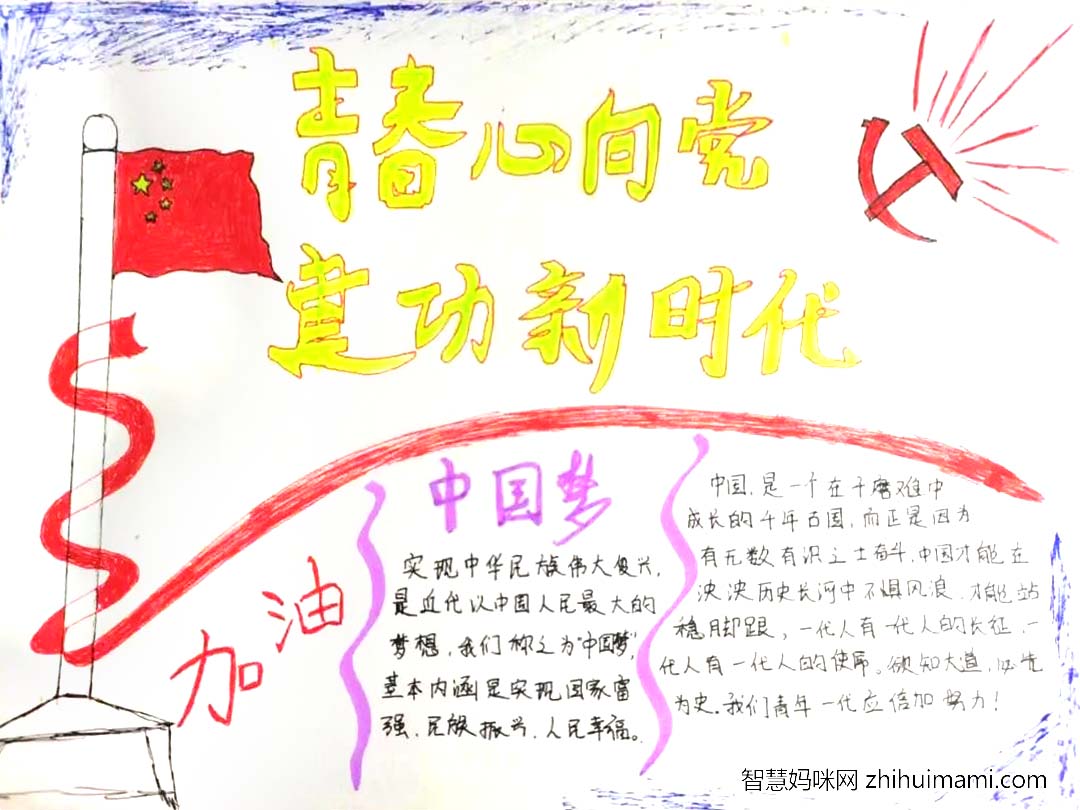 青春心向党
建功新时代
中国梦
加油
实现中华民族伟大复兴,
是近代以中国人民最大的
梦想,我们称之为"中国梦",
基本内涵是实现国家富
强,民族振兴,人民幸福。
中国,是一个在千磨难中
成长的千年古国,而正是因为
有无数有识之士奋斗,中国才能在
泱泱历史长河中不惧风浪,才能站
稳脚跟,一代人有一代人的长征,一
代人有一代人的使命。欲知大道,必先
为史.我们青年一代应倍加努力!
智慧妈咪网 zhihuimami.com